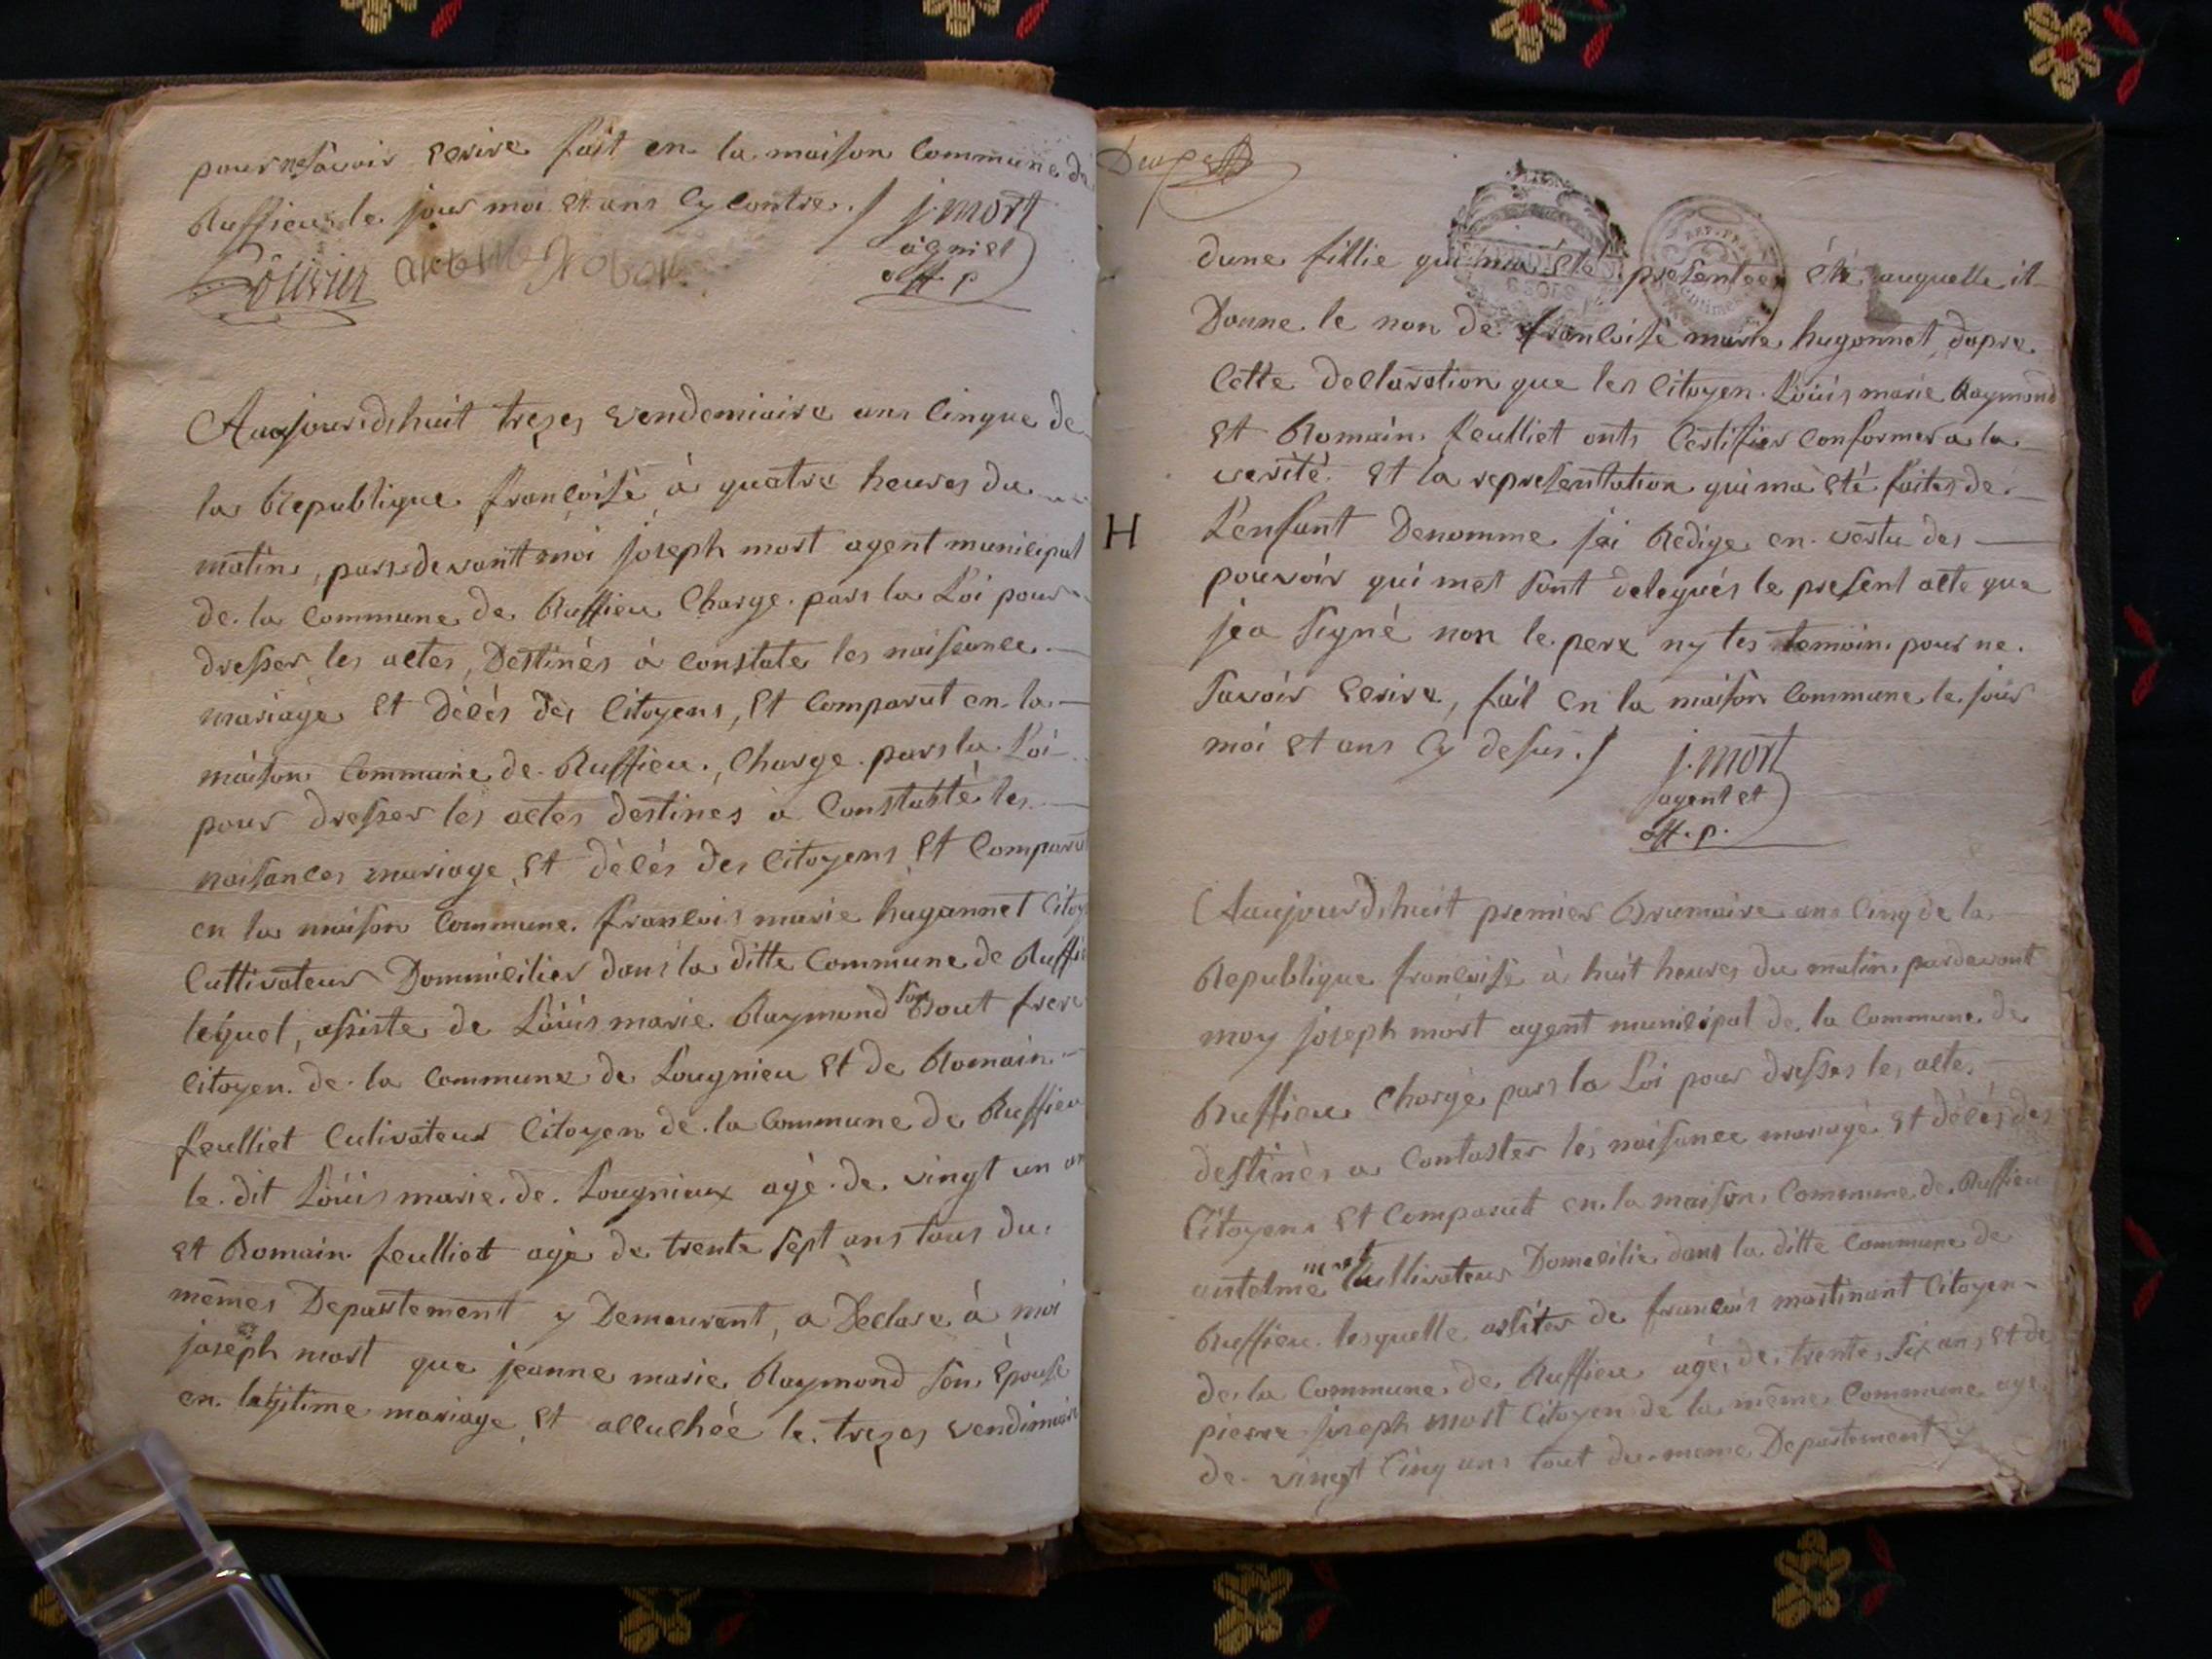 pour ne savoir ecrire fait en la maison Commune de
Ruffieu le jour moi et ans Cy Contre. / j. mort
agniel
off. p
olivier
Aujourdhuit trezes vendemiaire ans Cinque de
la Republique françoise à quatre heures du
matin, pardevant moi joseph mort agent municipal
de la Commune de Ruffieu Charge pars la Loi pour
dresser les actes, Destinés à Constate les naiscance
mariage et décés des Citoyens, et Comparut en la
maison Commune de Ruffieu, Charge pars la Loi
pour dresser les actes destinés à Constatté les
naisances mariage et décés des Citoyens et Comparut
en la maison Commune. françois marie hugonnet Citoy
Cultivateur Dommicilier dans la ditte Commune de Ruffie
lequel, assiste de Loüis marie Raymond son Bout frere
Citoyen de la Commune de Lougnieu et de Romain
feulliet Cultivateur Citoyen de la Commune de Ruffieu
le dit Loüis marie de Lougnieux agé de vingt un an
et Romain feulliet agé de trente sept ans tous du
mêmes Departement y Demeurent, a Declare à moi
joseph mort que jeanne marie Raymond son Epouse
en legitime mariage et accuchée le trezes vendimiaire
dune fillie qui ma été presentee et auquelle il
Donne le non de françoise marie hugonnet, dapre
Cette declaration que les Citoyen Loüis marie Raymond
et Romain feulliet onts Certifier Conformes a la
verité et la representation qui ma été faites de
H Lenfant Denomme jai Redige en vertu des
pouvoir qui met sont delegués le present acte que
jea signé non le pere ny les temoin pour ne
savoir ecrire, fait en la maison Commune le jour
moi et ans Cy desus. / j. mort
agent et
off. p.
Aujourdhuit premier Brumaire ans Cinq de la
Republique françoise à huit heures du matin, pardevant
moy joseph mort agent municipal de la Commune de
Ruffieu Chargé pars la Loi pour dresser les actes
destinés a Contaster les naisance mariage et décés des
Citoyens et Comparut en la maison Commune de Ruffieu
antelme mort Cultivateur Domicilie dans la ditte Commune de
Ruffieu lesquelle assites de françois martinant Citoyen
de la Commune de Ruffieu agé de trente six ans et de
pierre joseph mort Citoyen de la même Commune age
de vingt Cinq ans tout du meme Departement y